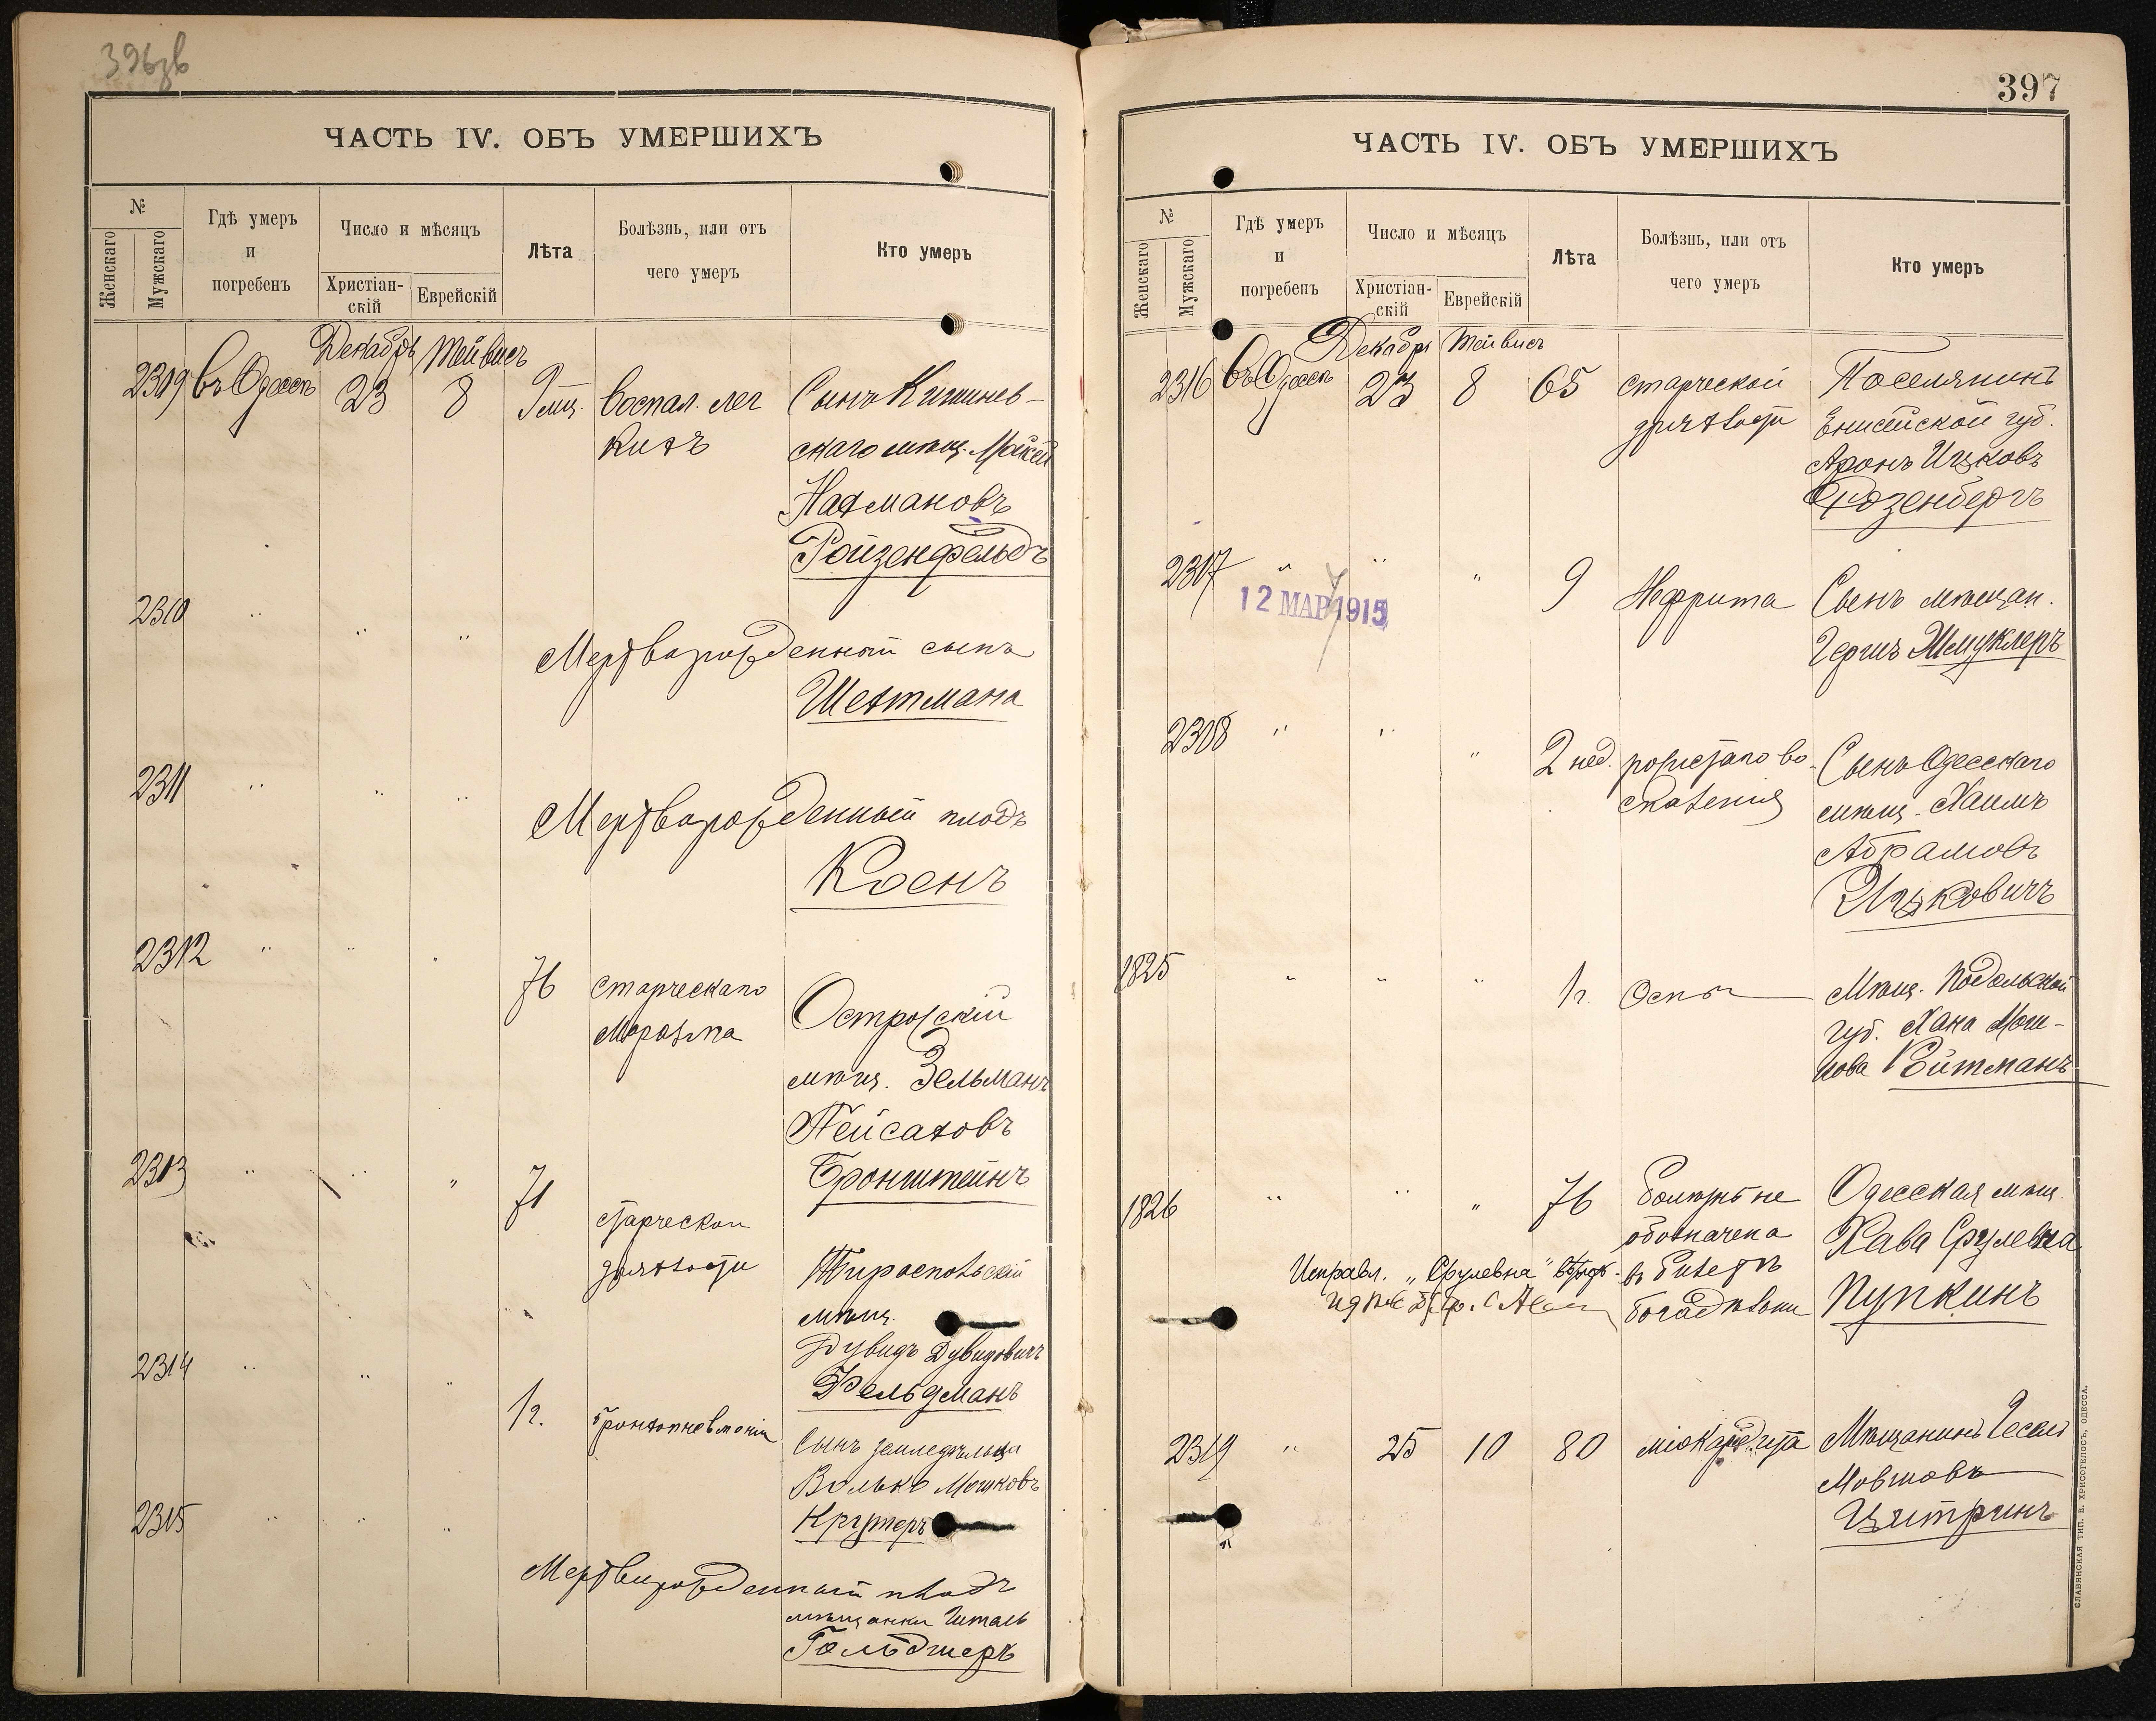 396зв
ЧАСТЬ IV. ОБЪ УМЕРШИХЪ
№
Женскаго
Мужскаго
Гдѣ умеръ
и
погребенъ
Число и мѣсяцъ
Христіан-
скій
Еврейскій
Лѣта
Болѣзнь, или отъ
чего умеръ
Кто умеръ
Декабрь Тейвисъ
2309 въ Одессѣ 23 8 9 мц. воспал. лег Сынъ Кишинев-
кихъ скаго мѣщ.
Нахмановъ
Ройзенфельдъ
2310 " " "
Мертворожденный сынъ
Шехтмана
2311 " " "
Мертворожденный плодъ
Коенъ
2312 " " " 76 старческаго
Маразма
Острожскій
мѣщ. Зельманъ
Пейсаховъ
Бронштейнъ
2313 " " " 71 старческой
дряхлости
Тираспольскій
мѣщ.
Дувидъ Дувидовичъ
Фельдманъ
2314 " " " 1 г. бронхопневмонія
Сынъ земледѣльца
Волько Мошковъ
Кругмеръ
2315 " " "
Мертворожденный плодъ
мѣщанки Читаль
Гольдшеръ
397
ЧАСТЬ IV. ОБЪ УМЕРШИХЪ
№
Женскаго
Мужскаго
Гдѣ умеръ
и
погребенъ
Число и мѣсяцъ
Христіан-
скій
Еврейскій
Лѣта
Болѣзнь, или отъ
чего умеръ
Кто умеръ
Декабрь Тейвисъ
2316 въ Одессѣ 23 8 65 старческой Поселянинъ
дряхлости Енисейской губ.
Аронъ Ицковъ
Розенбергъ
2317 " " " 9 Нефрита Сынъ мѣщан.
12 МАР 1915
Гершъ Шмуклеръ
2318 " " " 2 нед. рожистаго во- Сынъ Одесскаго
спаленія мѣщ. Хаимъ
Абрамовъ
Ицковичъ
1825 " " " 1 г. Оспы Мѣщ. Подольской
губ. Хана Мош-
кова Ройтманъ
1826 " " " 76 болѣзнь не Одесская мѣщ.
обозначена Хава Срулевна
Исправл. „Срулевна" въ билетѣ
богадѣльни Пупкинъ
2319 " 25 10 80 міокардита Мѣщанинъ Іосель
Мовшовъ
Цитринъ
СЛАВЯНСКАЯ ТИП. Е. ХРИСОГЕЛОСЪ, ОДЕССА.